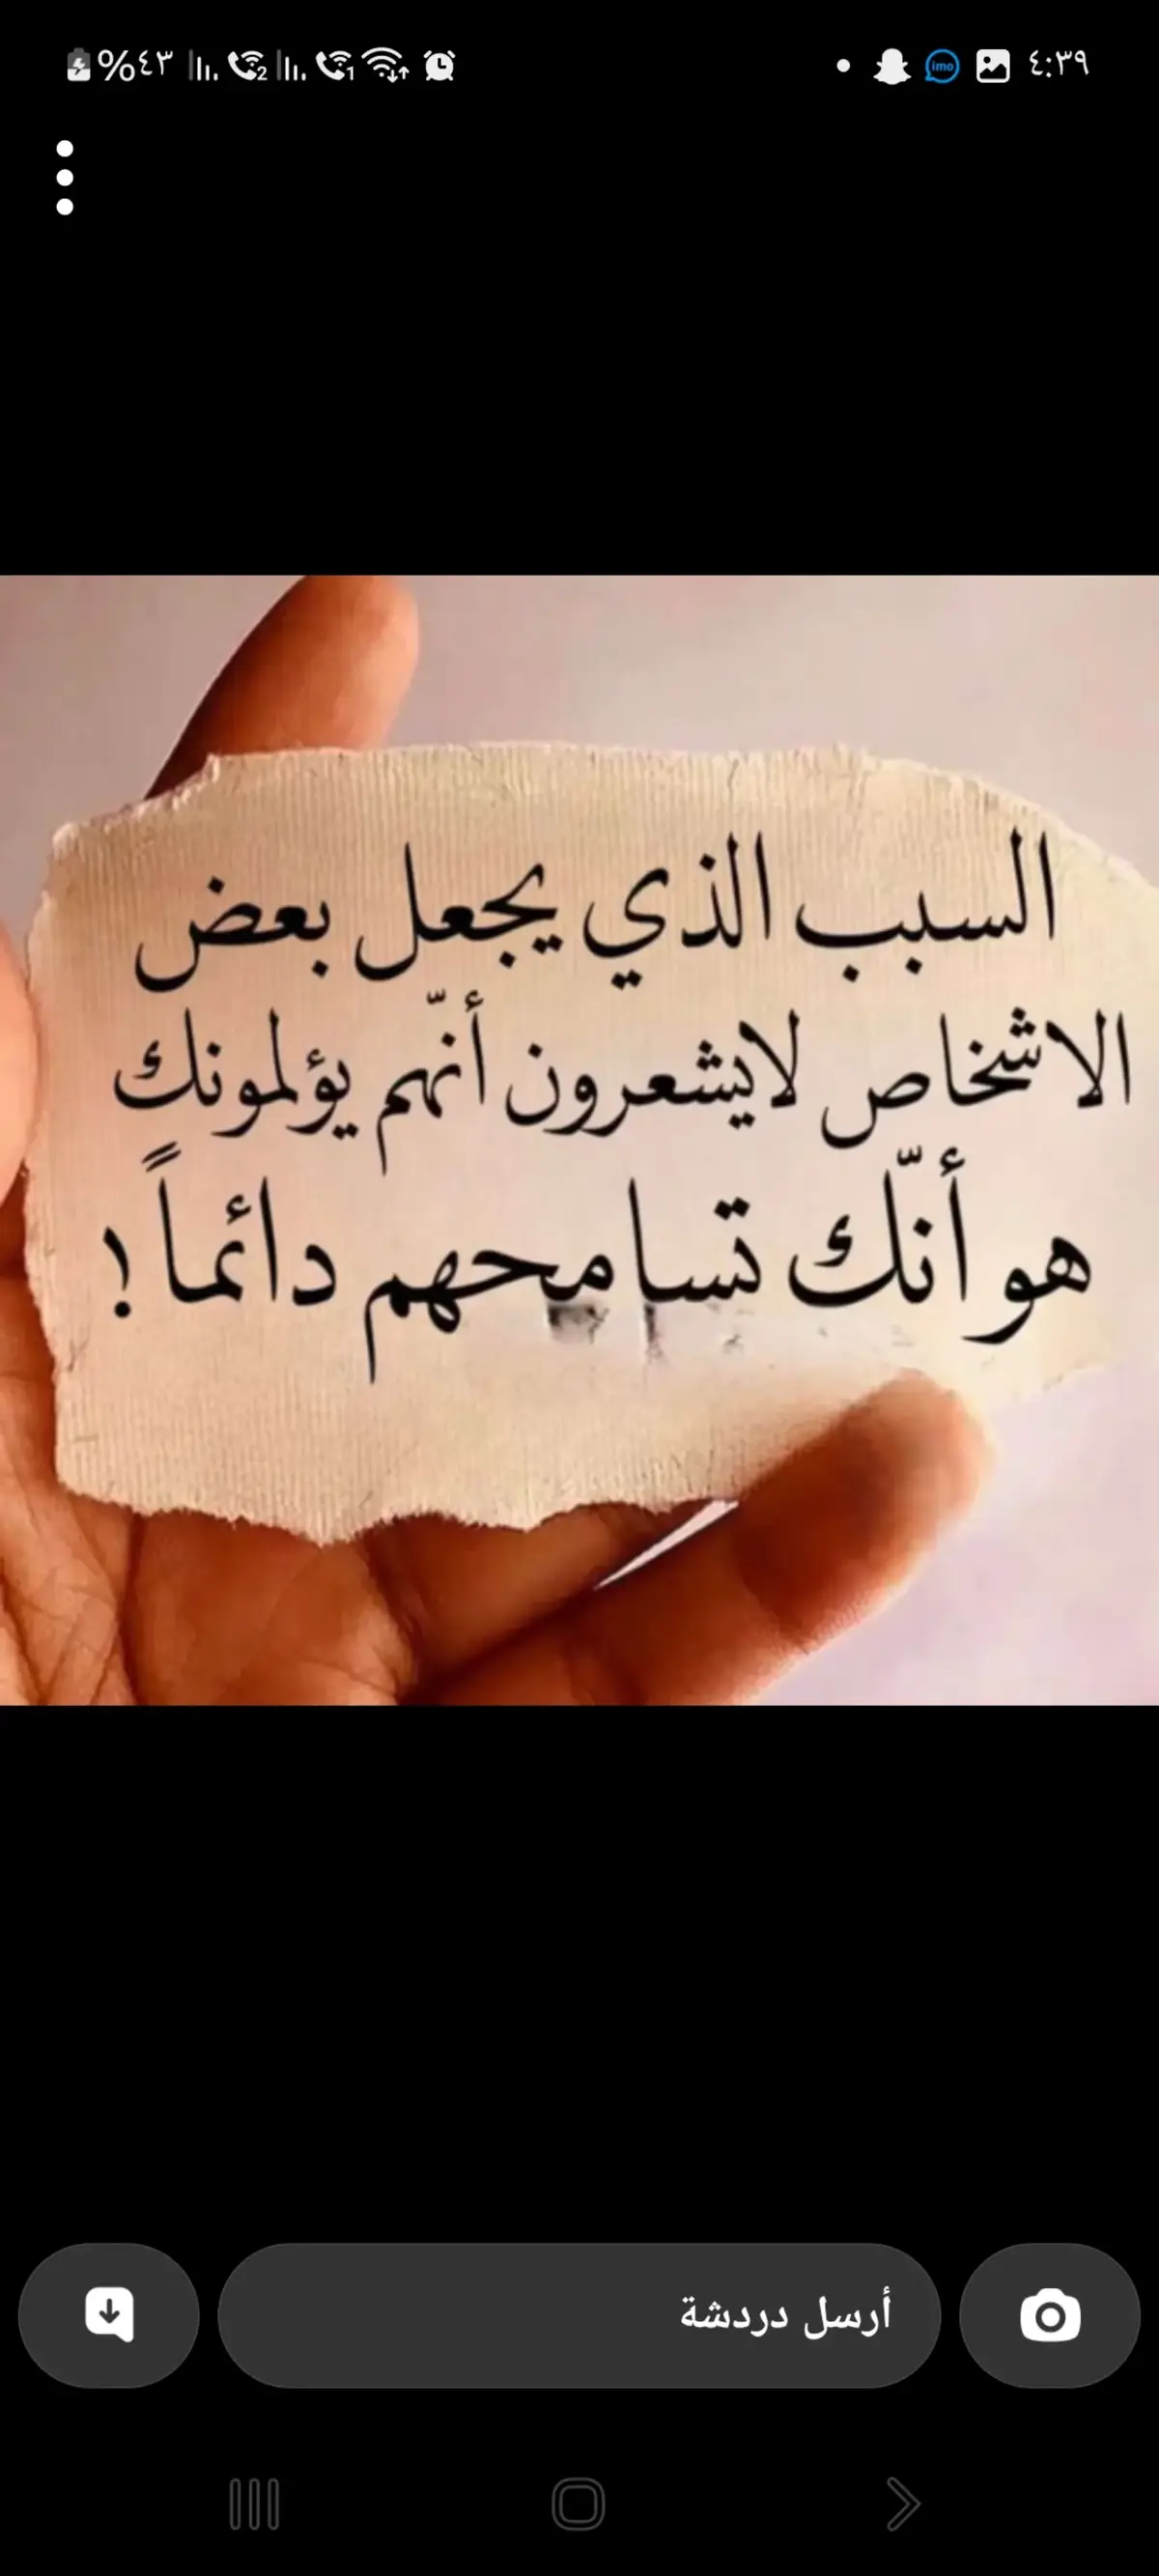 ٤:٣٩
imo
1
2
%٤٣
السبب الذي يجعل بعض
الاشخاص لايشعرون أنّهم يؤلمونك
هو أنّك تسامحهم دائماً !
أرسل دردشة